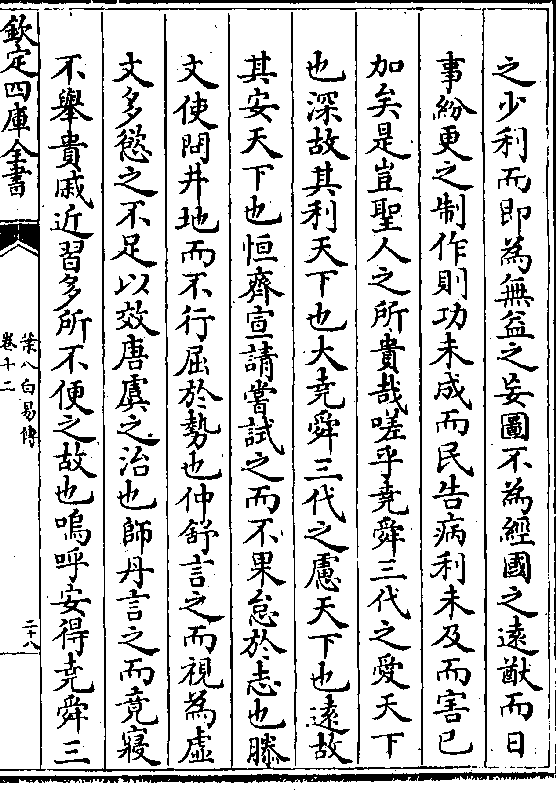 之少利而即為無益之妄圖不為經國之遠猷而日
事紛更之制作則功未成而民告病利未及而害已
加矣是豈聖人之所貴哉嗟乎堯舜三代之愛天下
也深故其利天下也大堯舜三代之慮天下也遠故
其安天下也恒齊宣請嘗試之而不果怠於志也滕
文使問井地而不行屈於勢也仲舒言之而視為虛
文多慾之不足以效唐虞之治也師丹言之而竟寢
不舉貴戚近習多所不便之故也嗚呼安得堯舜三
欽定四庫全書
葉八白易傳
卷十二
二十八